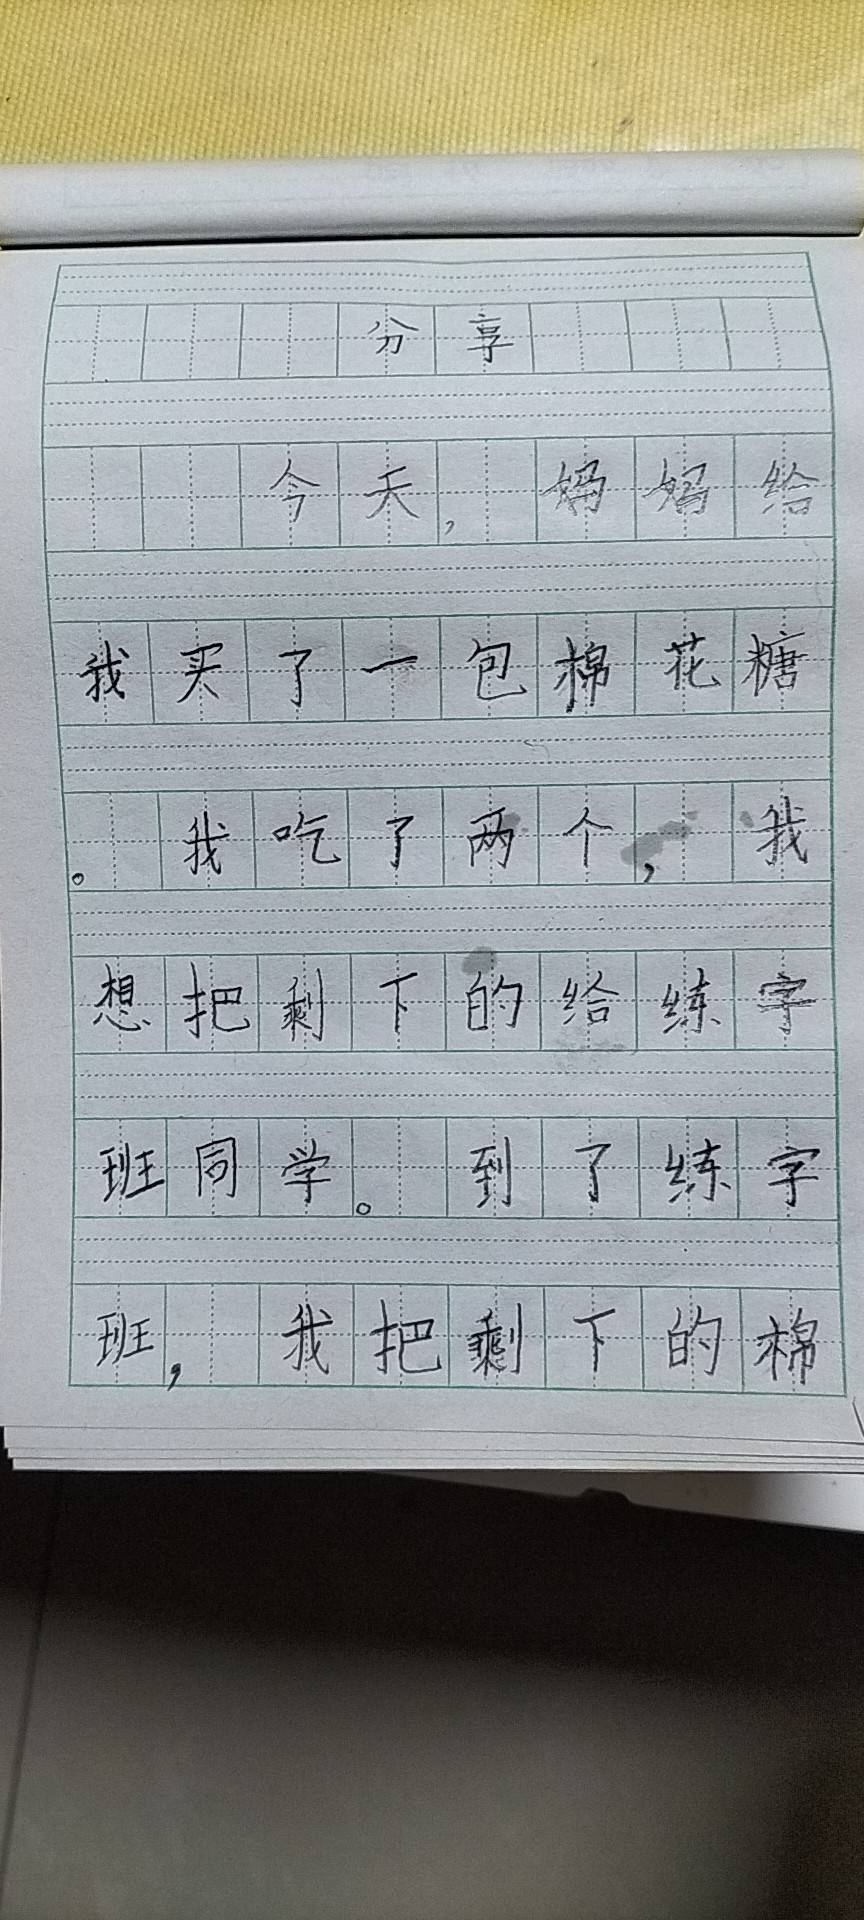 分享
今天，妈妈给
我买了一包棉花糖
。我吃了两个，我
想把剩下的给练字
班同学。到了练字
班，我把剩下的棉